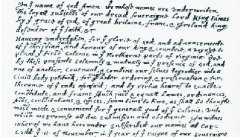 In yᵉ name of god Amen. We whose names are underwriten,
the loyall subjects of our dread soveraigne Lord King James
by yᵉ grace of god, of great Britaine, franc, & Ireland king,
defender of yᵉ faith, &c
Haveing undertaken, for yᵉ glorie of god, and advancemente
of yᵉ christian faith and honour of our king & countrie, a voyage to
plant yᵉ first colonie in yᵉ Northerne parts of Virginia. doe
by these presents solemnly & mutualy in yᵉ presence of god, and
one of another; covenant, & combine our selves togeather into a
Civill body politick; for our better ordering, & preservation & fur-
therance of yᵉ ends aforesaid; and by vertue hearof to enacte,
constitute, and frame shuch just & equall lawes, ordinances,
Acts, constitutions, & offices, from time to time, as shall be thought
most meete & convenient for yᵉ generall good of yᵉ colonie: unto
which we promise all due submission and obedience. In witnes
wherof we have hereunder subscribed our names at Cap-
Codd yᵉ .11. of November, in yᵉ year of yᵉ raigne of our soveraigne